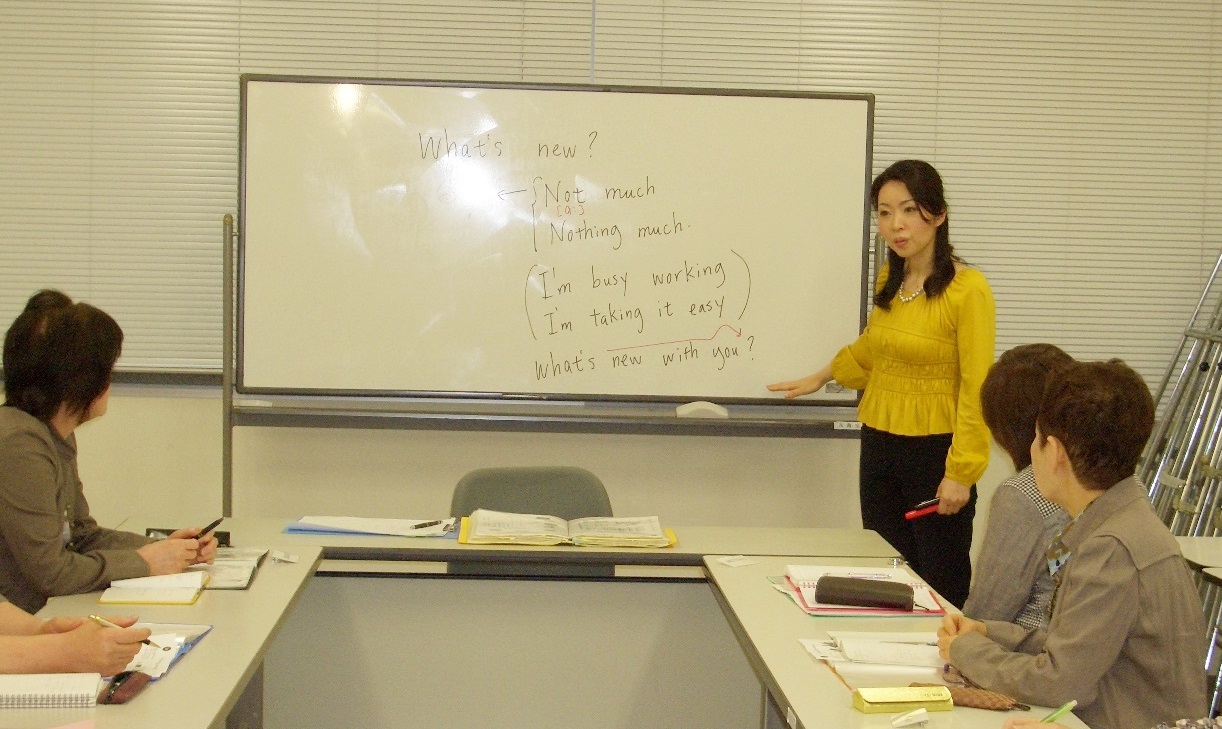 What's new?
Not much
[a:]
Nothing much.
(I'm busy working
I'm taking it easy)
What's new with you?